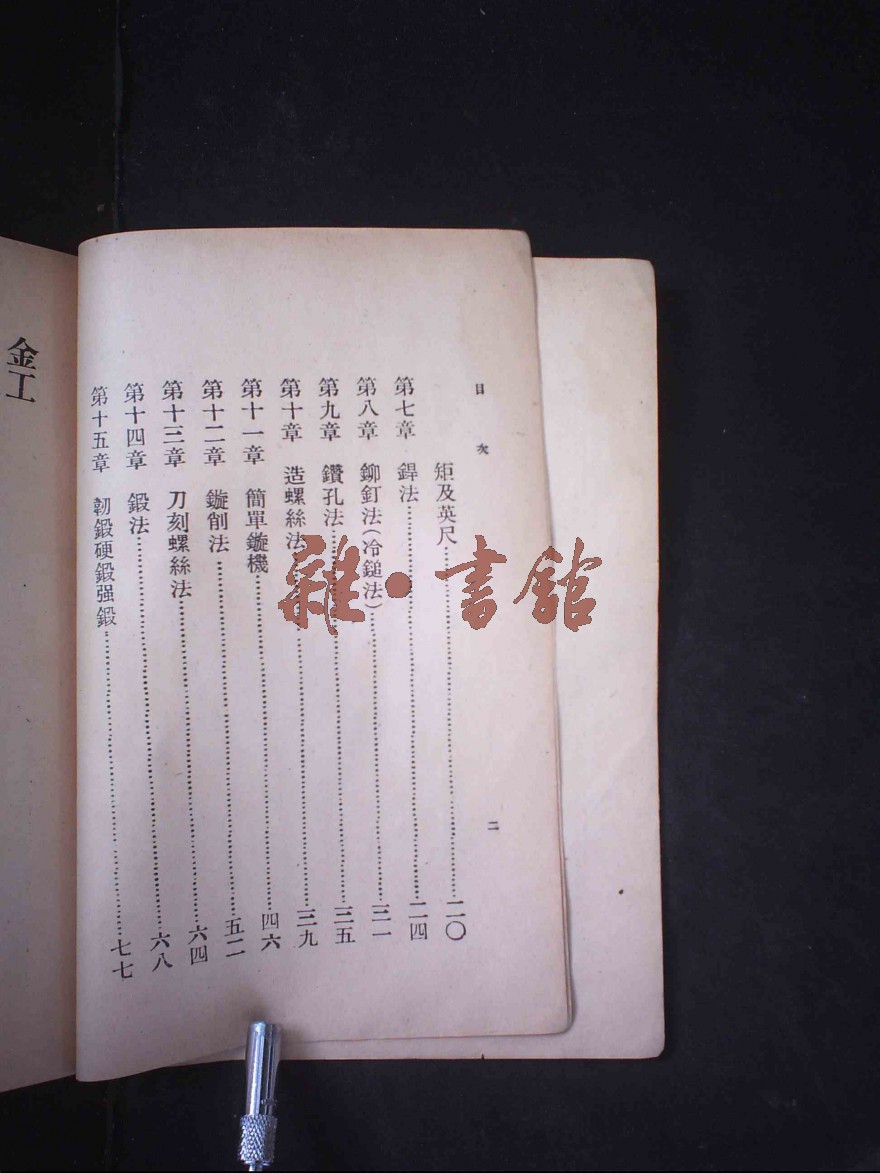 目次
二
矩及英尺……二〇
第七章 銲法……二四
第八章 鉚釘法(冷鎚法)……三一
第九章 鑽孔法……三五
第十章 造螺絲法……三九
第十一章 簡單鏇機……四六
第十二章 鏇削法……五二
第十三章 刀刻螺絲法……六四
第十四章 鍛法……六八
第十五章 韌鍛硬鍛强鍛……七七
金工
雜·書館